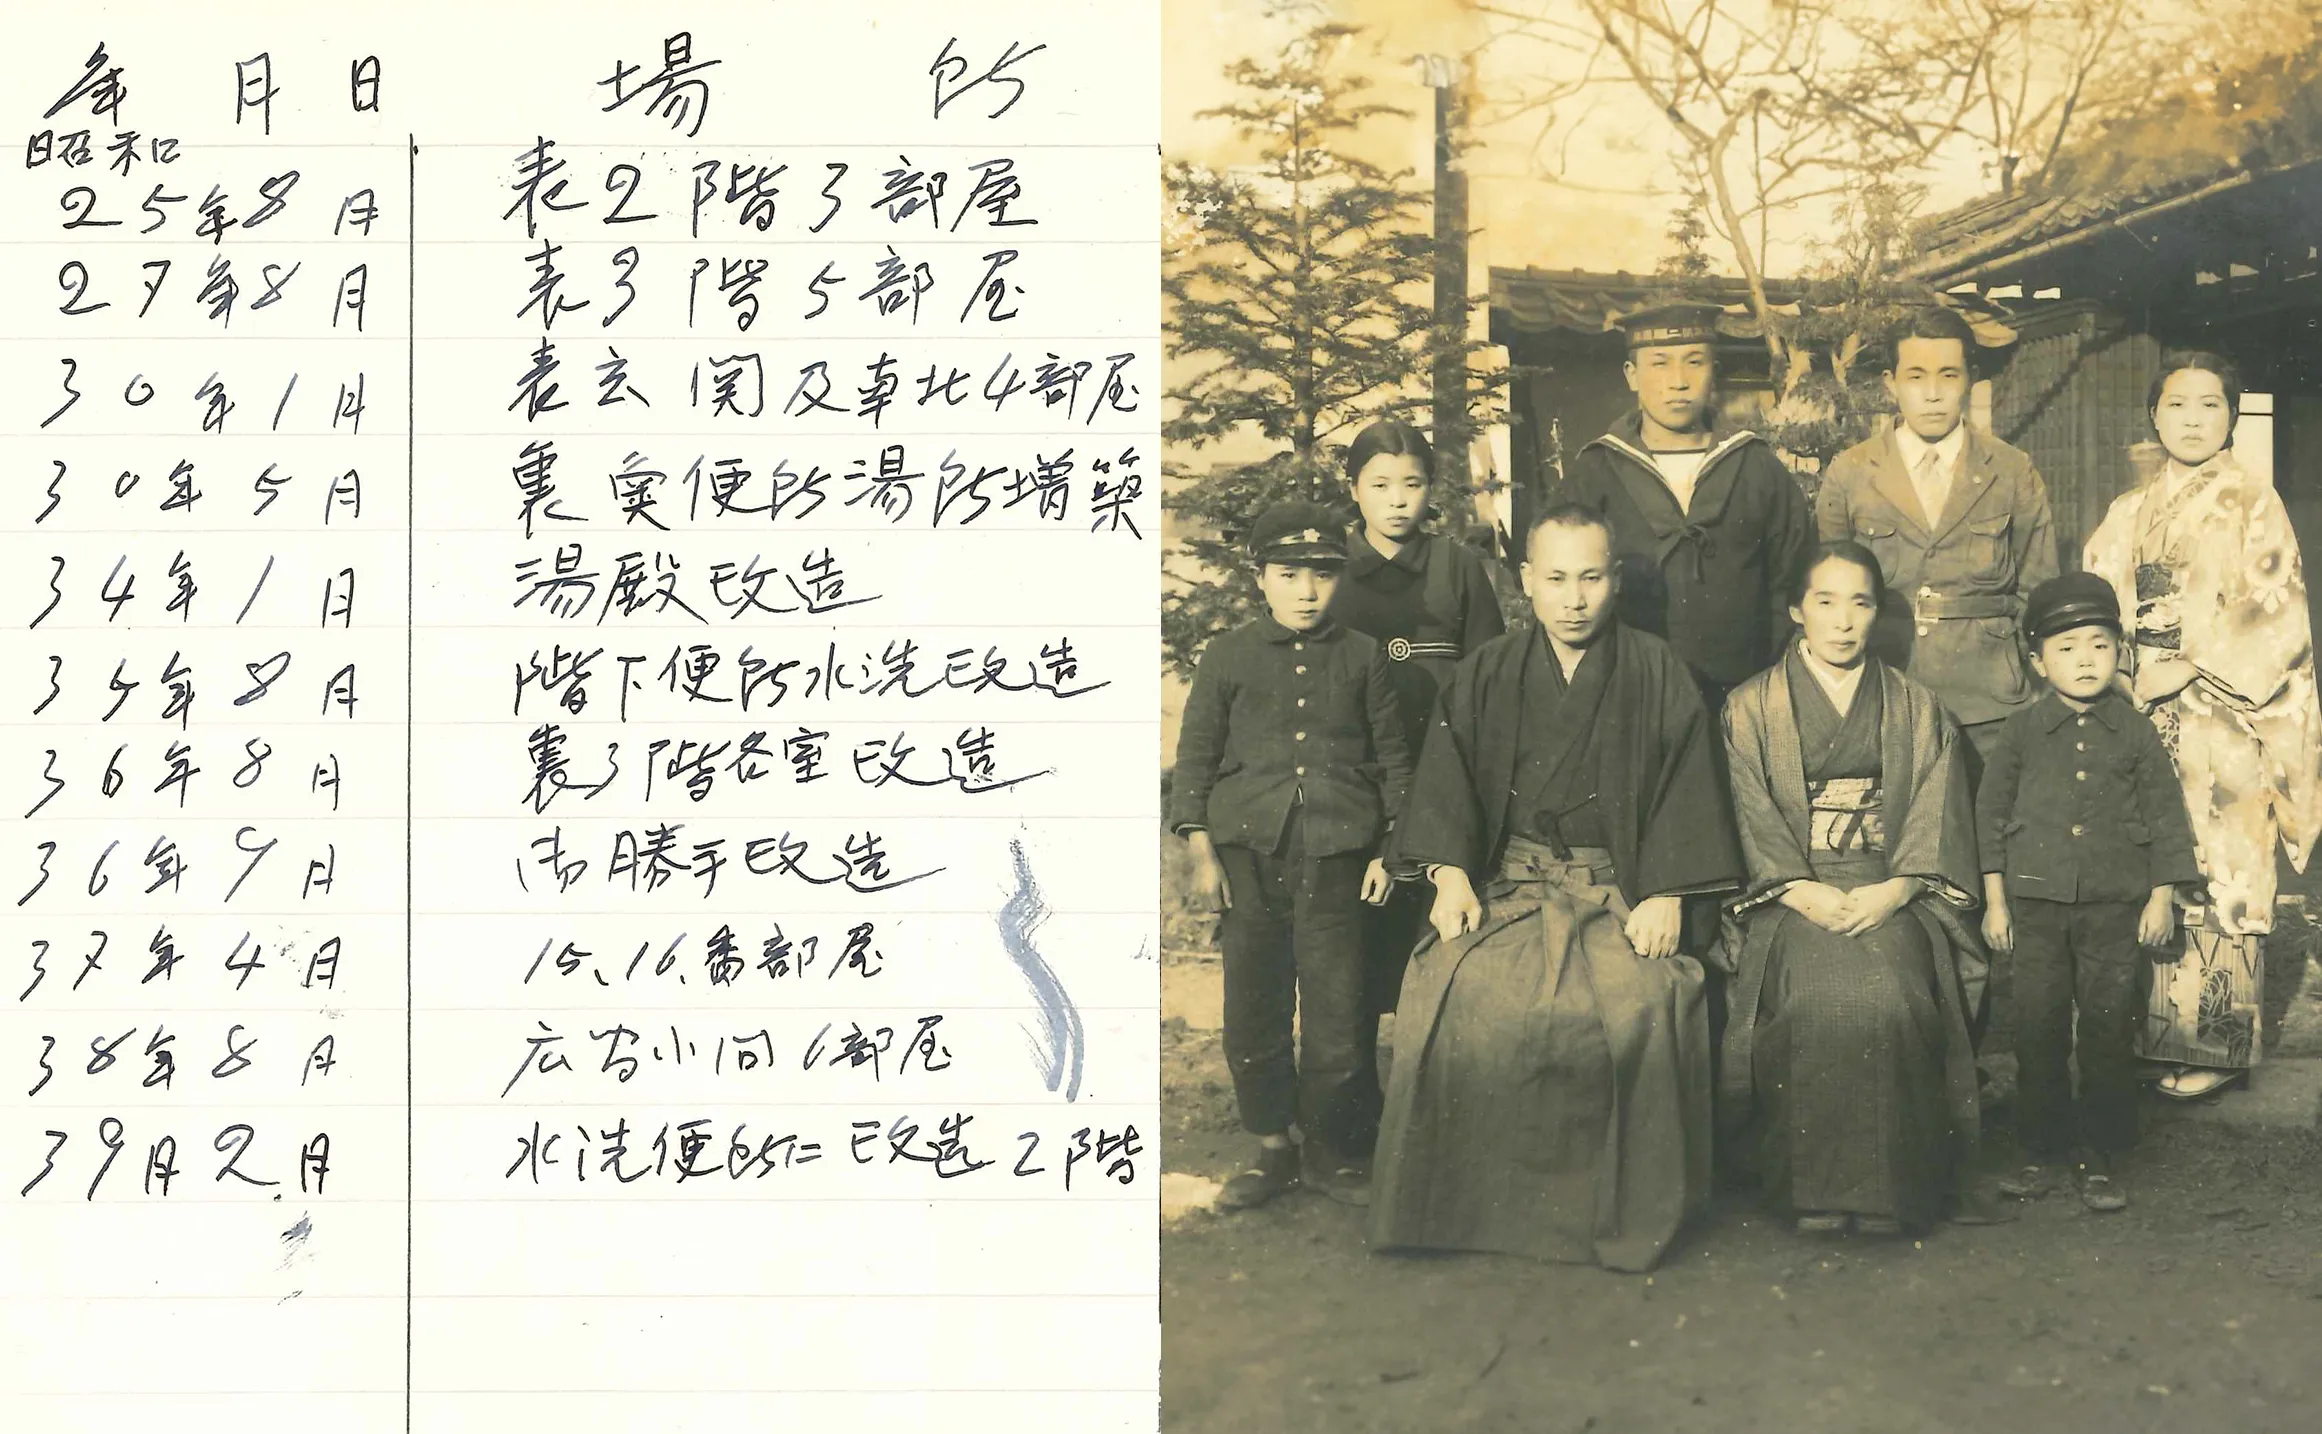 年 月 日 場 所
昭和
25年8月 表2階3部屋
27年8月 表3階5部屋
30年1月 表玄関及東北4部屋
30年5月 裏 便所湯所増築
34年1月 湯殿改造
35年8月 階下便所水洗改造
36年8月 裏3階各室改造
36年9月 御勝手改造
37年4月 15、16、番部屋
38年8月 小間6部屋
39月2月 水洗便所に改造2階